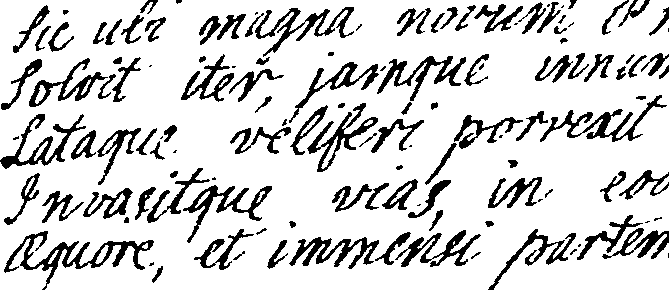 Sic ubi magna novum
Solvit iter, jamque innum
Lataque veliferi porrexit
Invasitque vias, in eoo
Æquore, et immensi partem